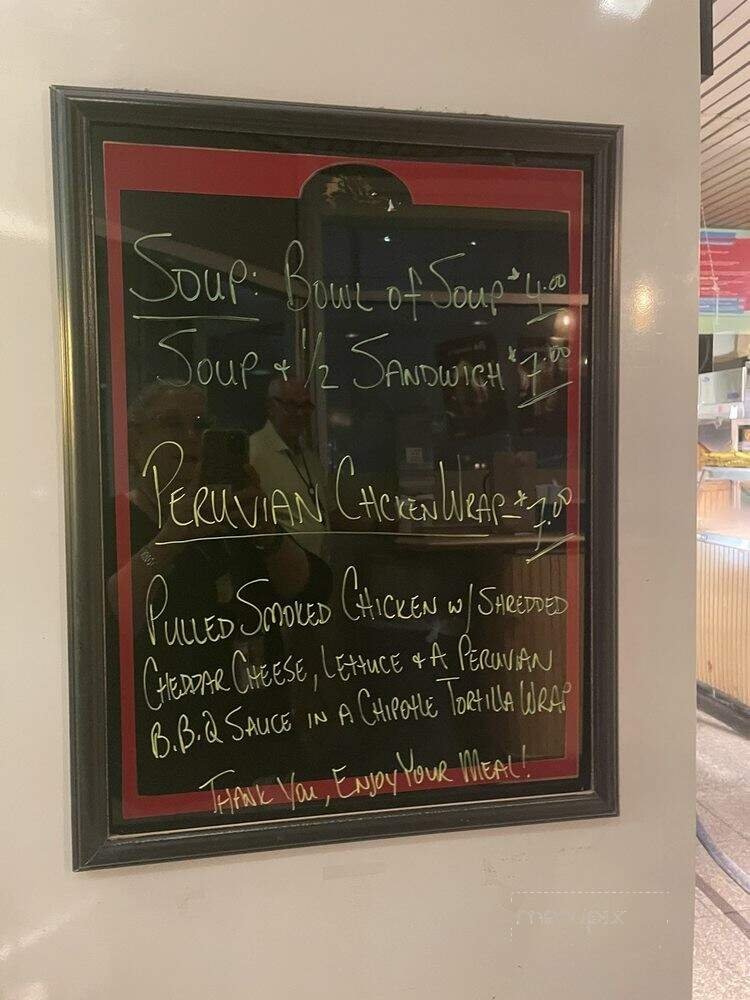 SOUP: BOWL OF SOUP $4.00
SOUP + 1/2 SANDWICH $7.00
PERUVIAN CHCKEN WRAP - $7.00
PULLED SMOKED CHICKEN W/ SHREDDED
CHEDDAR CHEESE, LETTUCE + A PERUVIAN
B.B.Q SAUCE IN A CHIPOTLE TORTILLA WRAP
THANK YOU, ENJOY YOUR MEAL!
menupix